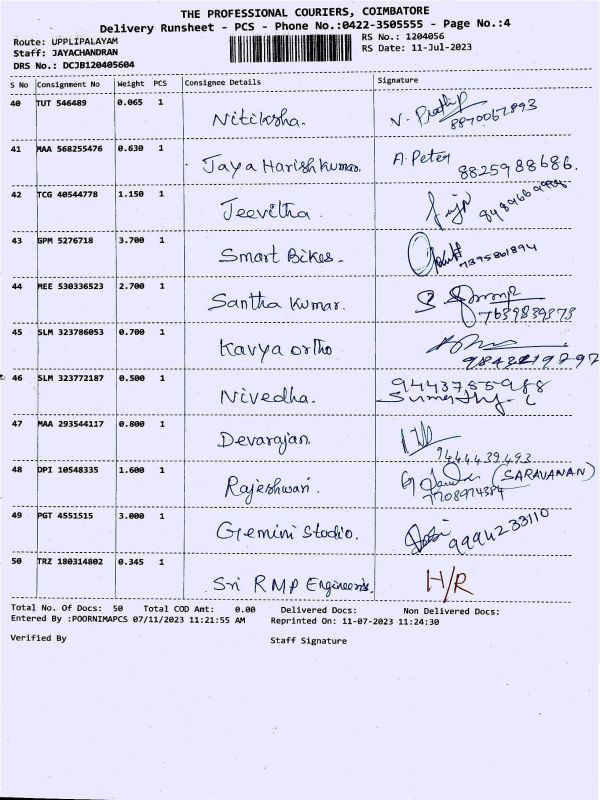 THE PROFESSIONAL COURIERS, COIMBATORE
Delivery Runsheet - PCS - Phone No.:0422-3505555 - Page No.:4
Route: UPPLIPALAYAM RS No.: 1204056
Staff: JAYACHANDRAN RS Date: 11-Jul-2023
DRS No.: DCJB120405604
S No Consignment No Weight PCS Consignee Details Signature
40 TUT 546489 0.065 1 Nitiksha. N. Prathip
8870067893
41 MAA 568255476 0.630 1 Jaya Harish kumar. A. Peter
8825988686.
42 TCG 40544778 1.150 1 Jeevitha.
43 GPM 5276718 3.700 1 Smart Bikes. 7395801894
44 MEE 530336523 2.700 1 Santha Kumar.
7639839373
45 SLM 323786053 0.700 1 Kavya ortho
46 SLM 323772187 0.500 1 Nivedha.
Sumathy. L
47 MAA 293544117 0.800 1 Devarajan.
9444439493
48 DPI 10548335 1.600 1 Rajeshwari. (SARAVANAN)
7708974384
49 PGT 4551515 3.000 1 Gemini Stodio. 9994233110
50 TRZ 180314802 0.345 1 Sri RMP Engineers. H/R
Total No. Of Docs: 50 Total COD Amt: 0.00 Delivered Docs: Non Delivered Docs:
Entered By :POORNIMAPCS 07/11/2023 11:21:55 AM Reprinted On: 11-07-2023 11:24:30
Verified By Staff Signature